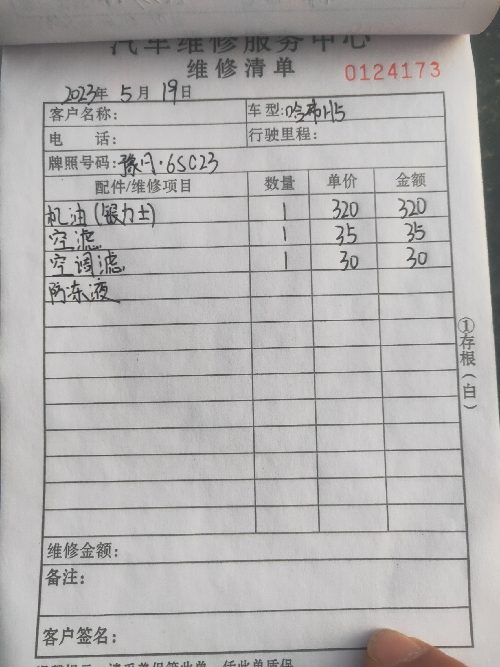 汽车维修服务中心
维修清单
0124173
2023年 5月 19日
客户名称: 车型:哈弗H5
电 话: 行驶里程:
牌照号码:
配件/维修项目 数量 单价 金额
机油(银力士) 1 320 320
空滤 1 35 35
空调滤 1 30 30
防冻液
①存根(白)
维修金额:
备注:
客户签名: